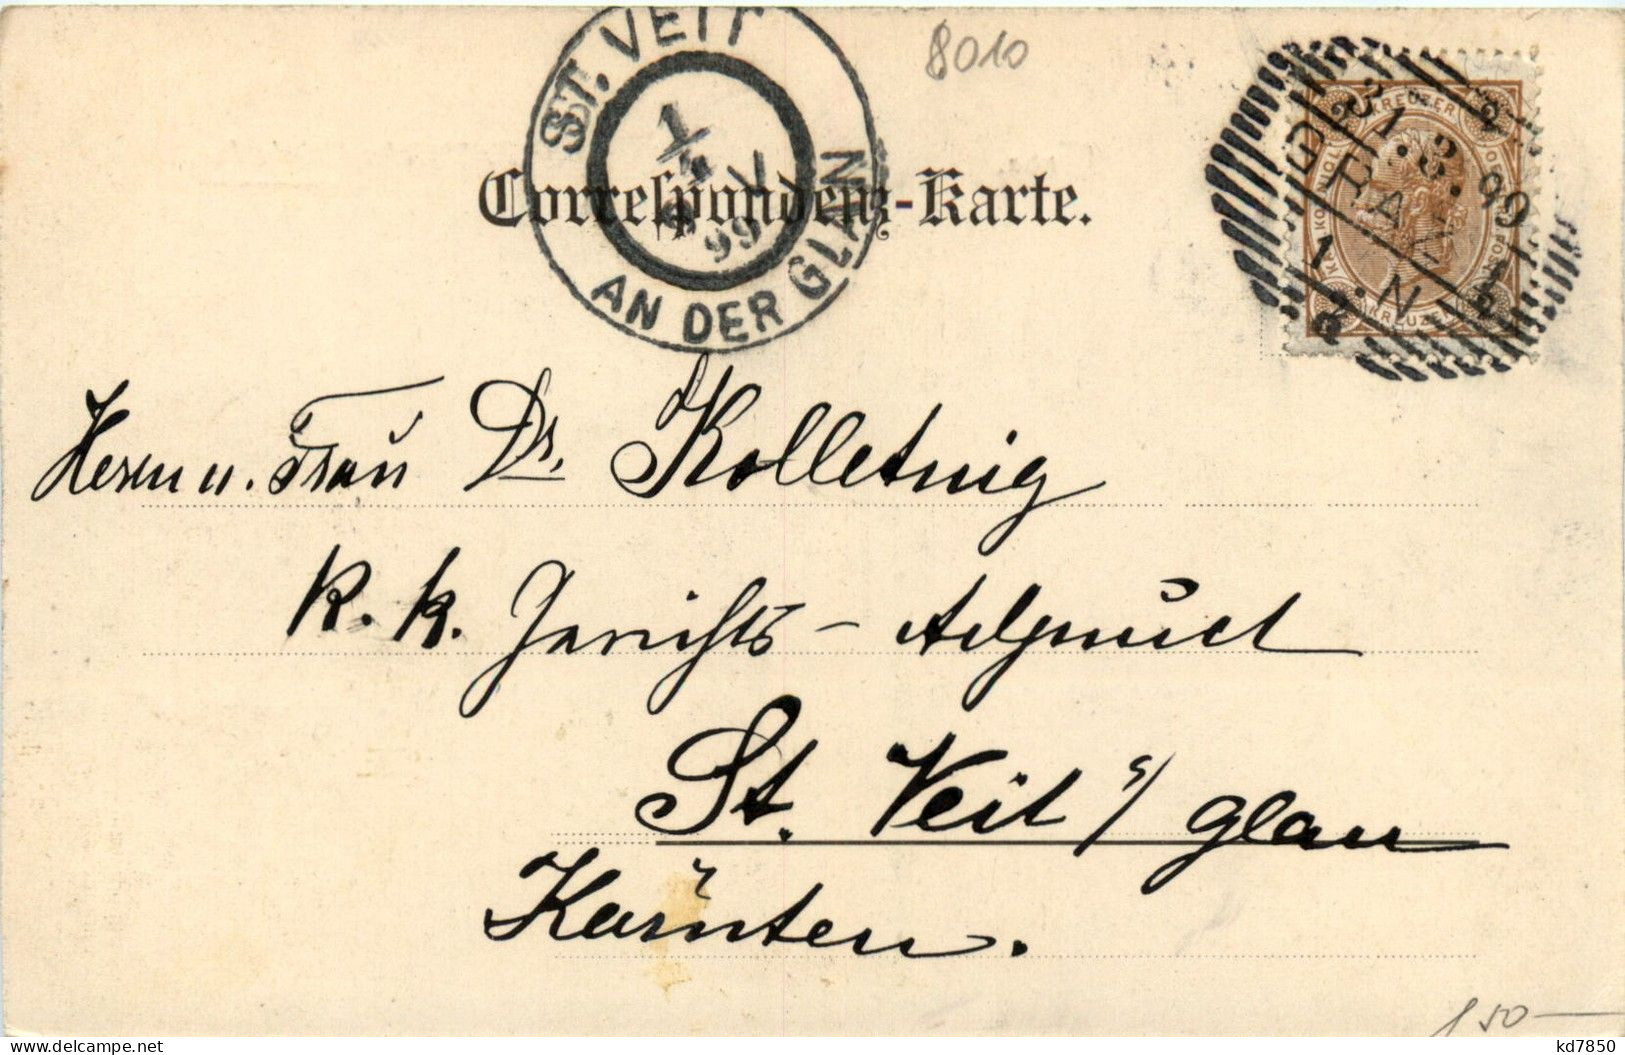 8010
ST. VEIT
AN DER GLAN
1/4
99
V
KREUZER
2
31.3.99
GRAZ
1.N
KREUZER
Correspondenz-Karte.
Herrn u. Frau Dr. Kolletnig
k. k. Gerichts-Adjunct
St. Veit a/ Glan
Kärnten.
150—
kd7850